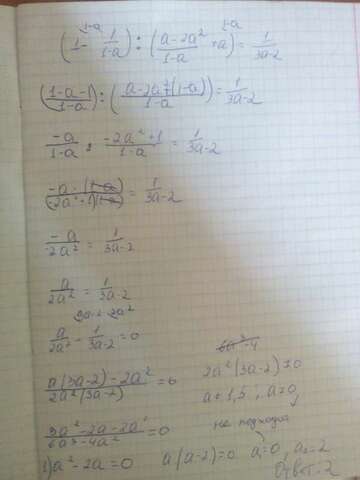 1-a 1-a
(1 - 1/(1-a)) : ((a-2a²)/(1-a) + a) = 1/(3a-2)
((1-a-1)/(1-a)) : ((a-2a²+(1-a))/(1-a)) = 1/(3a-2)
-a/(1-a) : (-2a²+1)/(1-a) = 1/(3a-2)
(-a · (1-a))/((-2a²+1)(1-a)) = 1/(3a-2)
-a/(-2a²) = 1/(3a-2)
a/(2a²) = 1/(3a-2)
3a-2 2a²
a/(2a²) - 1/(3a-2) = 0
6a³-4
(a(3a-2) - 2a²)/(2a²(3a-2)) = 0
2a²(3a-2) ≠ 0
a ≠ 1,5 ; a ≠ 0
(3a²-2a-2a²)/(6a³-4a²) = 0
не подходит
1) a²-2a = 0 a(a-2) = 0 a₁=0, a₂=2
Ответ: 2